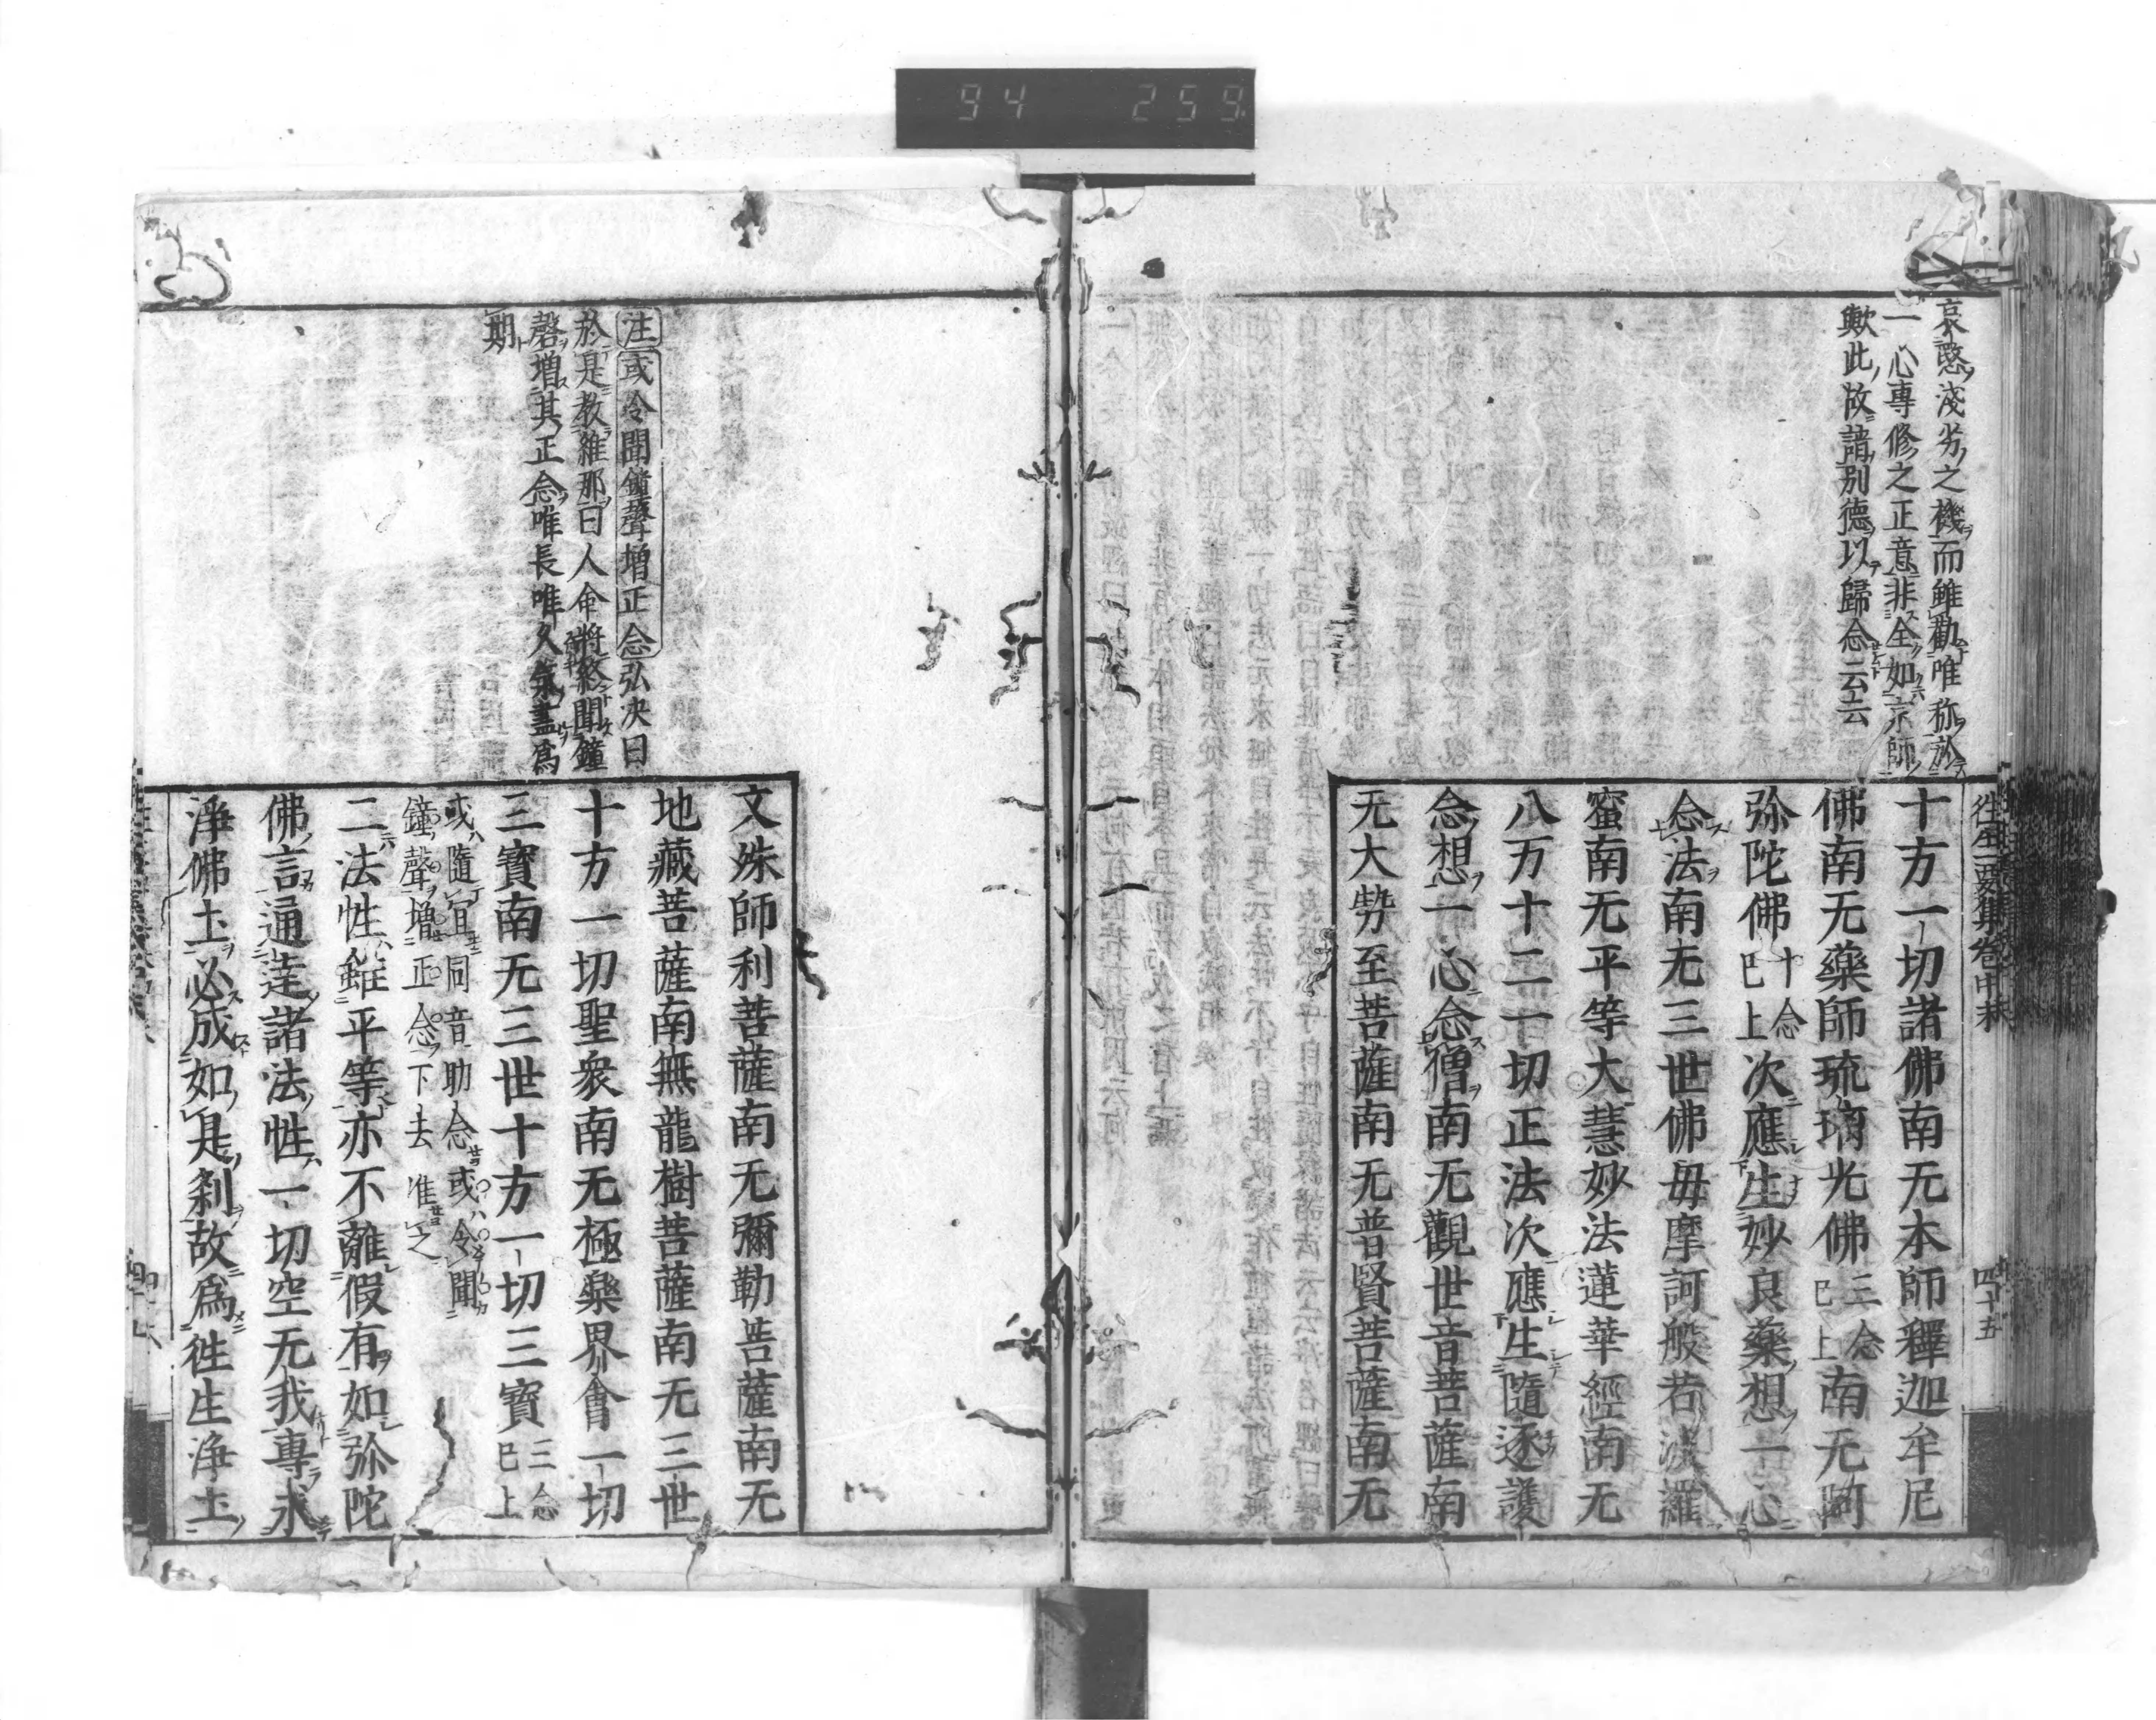 94 259
哀愍淺劣之機而雖勸唯称於
一心專修之正意非全如京師
歟此故諳別德以歸念云云
往生要集卷中末
四十五
十方一切諸佛南无本師釋迦牟尼
佛南无藥師琉璃光佛三念已上南无阿
弥陀佛十念已上次應生妙良藥想一心
念法南无三世佛毋摩訶般若波羅
蜜南无平等大慧妙法蓮華經南无
八万十二一切正法次應生隨逐護
念想一心念僧南无觀世音菩薩南
无大勢至菩薩南无普賢菩薩南无
注或令聞鐘聲增正念弘决曰
於是教維那曰人命將終聞鐘
磬增其正念唯長唯久氣盡爲
期
文殊師利菩薩南无彌勒菩薩南无
地藏菩薩南無龍樹菩薩南无三世
十方一切聖衆南无極樂界會一切
三寶南无三世十方一切三寶三念已上
或隨宜同音助念或令聞
鐘聲增正念下去准之
二法性雖平等亦不離假有如弥陀
佛言通達諸法性一切空无我專求
淨佛土必成如是刹故爲往生淨土